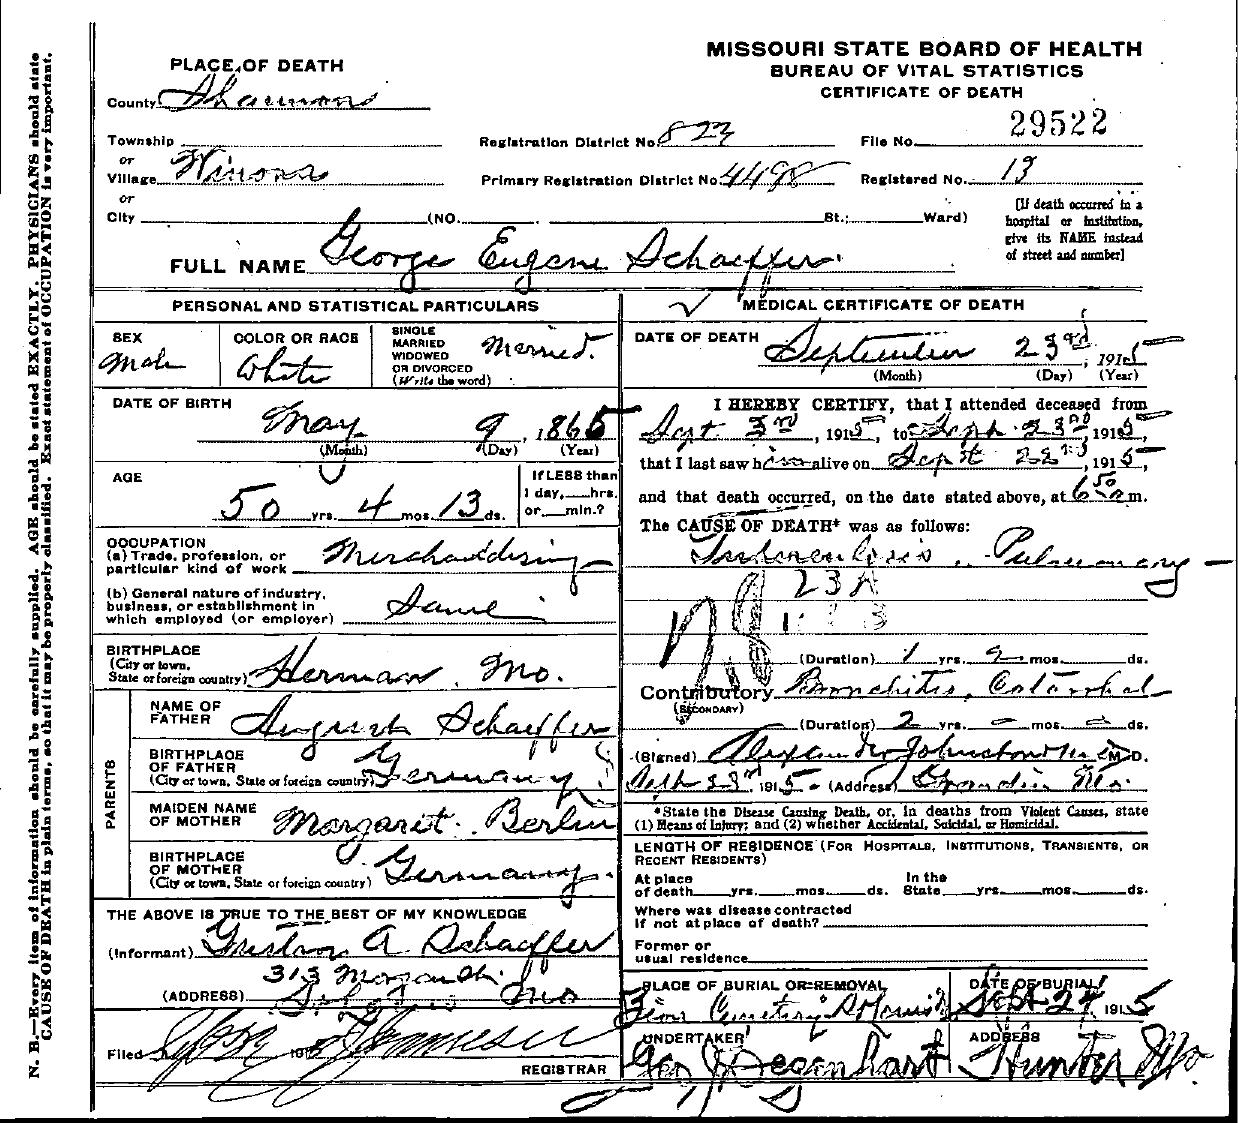 MISSOURI STATE BOARD OF HEALTH
BUREAU OF VITAL STATISTICS
CERTIFICATE OF DEATH
PLACE OF DEATH
County Shannon
Township
or
Village Winona
or
City (NO. St.; Ward)
Registration District No. 823
File No. 29522
Primary Registration District No. 4498
Registered No. 13
[If death occurred in a
hospital or institution,
give its NAME instead
of street and number]
FULL NAME George Eugene Schaeffer
PERSONAL AND STATISTICAL PARTICULARS
SEX
Male
COLOR OR RACE
White
SINGLE
MARRIED
WIDOWED
OR DIVORCED
(Write the word)
Married.
DATE OF BIRTH
May 9, 1865
(Month) (Day) (Year)
AGE
50 yrs. 4 mos. 13 ds.
If LESS than
1 day, hrs.
or min.?
OCCUPATION
(a) Trade, profession, or
particular kind of work Merchandising
(b) General nature of industry,
business, or establishment in
which employed (or employer) Same
BIRTHPLACE
(City or town,
State or foreign country) Herman, Mo.
PARENTS
NAME OF
FATHER August Schaeffer
BIRTHPLACE
OF FATHER
(City or town, State or foreign country) Germany
MAIDEN NAME
OF MOTHER Margaret Berlin
BIRTHPLACE
OF MOTHER
(City or town, State or foreign country) Germany.
THE ABOVE IS TRUE TO THE BEST OF MY KNOWLEDGE
(Informant) A Schaeffer
313
(ADDRESS) Mo
Filed 191
REGISTRAR
MEDICAL CERTIFICATE OF DEATH
DATE OF DEATH September 23rd, 1915
(Month) (Day) (Year)
I HEREBY CERTIFY, that I attended deceased from
Sept 3rd, 1915, to Sept 23rd, 1915,
that I last saw him alive on Sept 22nd, 1915,
and that death occurred, on the date stated above, at 6 50 a m.
The CAUSE OF DEATH* was as follows:
Tuberculosis, Pulmonary
23A
(Duration) 1 yrs. 9 mos. ds.
Contributory Bronchitis, Catarrhal
(SECONDARY)
(Duration) 2 yrs. – mos. – ds.
(Signed) M.D.
23rd, 1915 (Address) Grandin Mo.
*State the Disease Causing Death, or, in deaths from Violent Causes, state
(1) Means of Injury; and (2) whether Accidental, Suicidal, or Homicidal.
LENGTH OF RESIDENCE (FOR HOSPITALS, INSTITUTIONS, TRANSIENTS, OR
RECENT RESIDENTS)
At place
of death yrs. mos. ds.
In the
State yrs. mos. ds.
Where was disease contracted
if not at place of death?
Former or
usual residence
PLACE OF BURIAL OR REMOVAL
Zion Cemetery St Louis
DATE OF BURIAL
Sept 24 1915
UNDERTAKER
Geo J Degenhart
ADDRESS
Hunter Mo.
N. B.—Every item of information should be carefully supplied. AGE should be stated EXACTLY. PHYSICIANS should state
CAUSE OF DEATH in plain terms, so that it may be properly classified. Exact statement of OCCUPATION is very important.